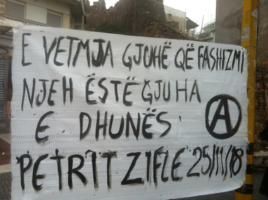 E VETMJA GJUHË QË FASHIZMI
NJEH ËSTË GJUHA
E DHUNËS
PETRIT ZIFLE 25/11/18